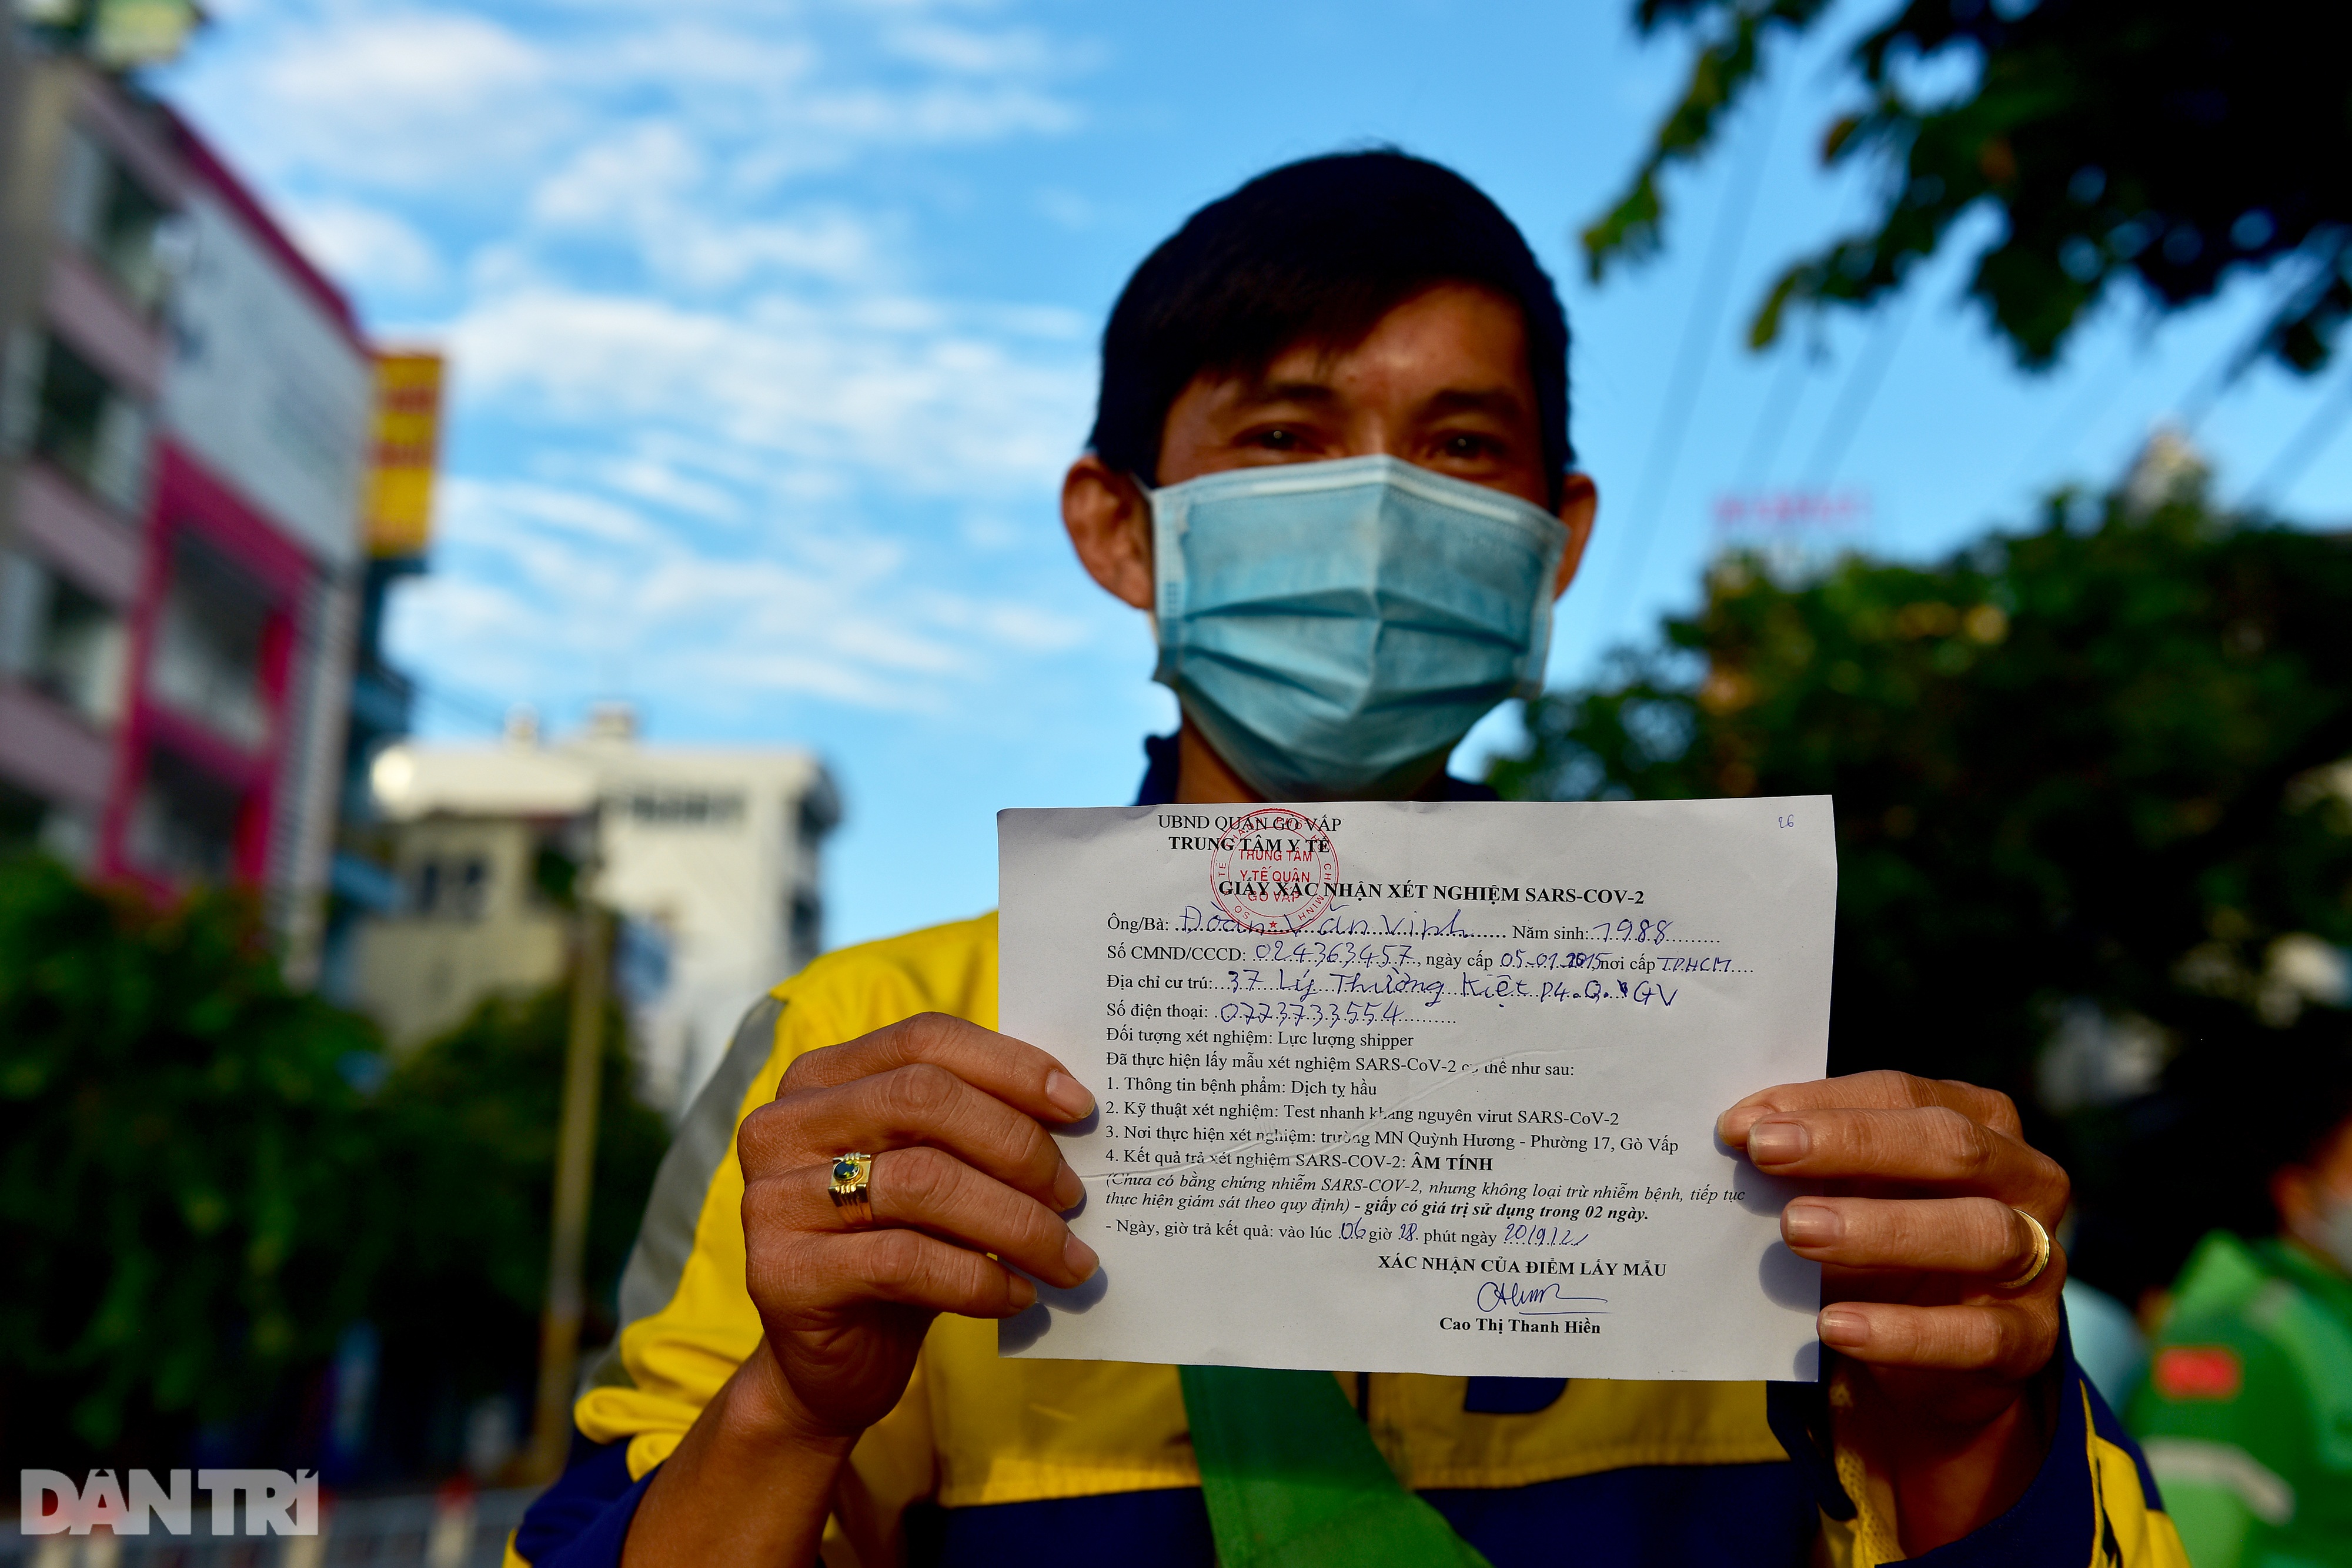 UBND QUẬN GÒ VẤP
TRUNG TÂM Y TẾ
TRUNG TÂM
Y TẾ QUẬN
GÒ VẤP
GIẤY XÁC NHẬN XÉT NGHIỆM SARS-COV-2
Ông/Bà: Đoàn Văn Vinh Năm sinh: 1988
Số CMND/CCCD: 024363457, ngày cấp 05-01-2015 nơi cấp TPHCM
Địa chỉ cư trú: 37 Lý Thường Kiệt P4. Q. GV
Số điện thoại: 0773733554
Đối tượng xét nghiệm: Lực lượng shipper
Đã thực hiện lấy mẫu xét nghiệm SARS-CoV-2 cụ thể như sau:
1. Thông tin bệnh phẩm: Dịch tỵ hầu
2. Kỹ thuật xét nghiệm: Test nhanh kháng nguyên virut SARS-CoV-2
3. Nơi thực hiện xét nghiệm: trường MN Quỳnh Hương - Phường 17, Gò Vấp
4. Kết quả trả xét nghiệm SARS-COV-2: ÂM TÍNH
(Chưa có bằng chứng nhiễm SARS-COV-2, nhưng không loại trừ nhiễm bệnh, tiếp tục
thực hiện giám sát theo quy định) - giấy có giá trị sử dụng trong 02 ngày.
- Ngày, giờ trả kết quả: vào lúc 06 giờ 28 phút ngày 20/9/21
XÁC NHẬN CỦA ĐIỂM LẤY MẪU
Cao Thị Thanh Hiền
DÂN TRÍ